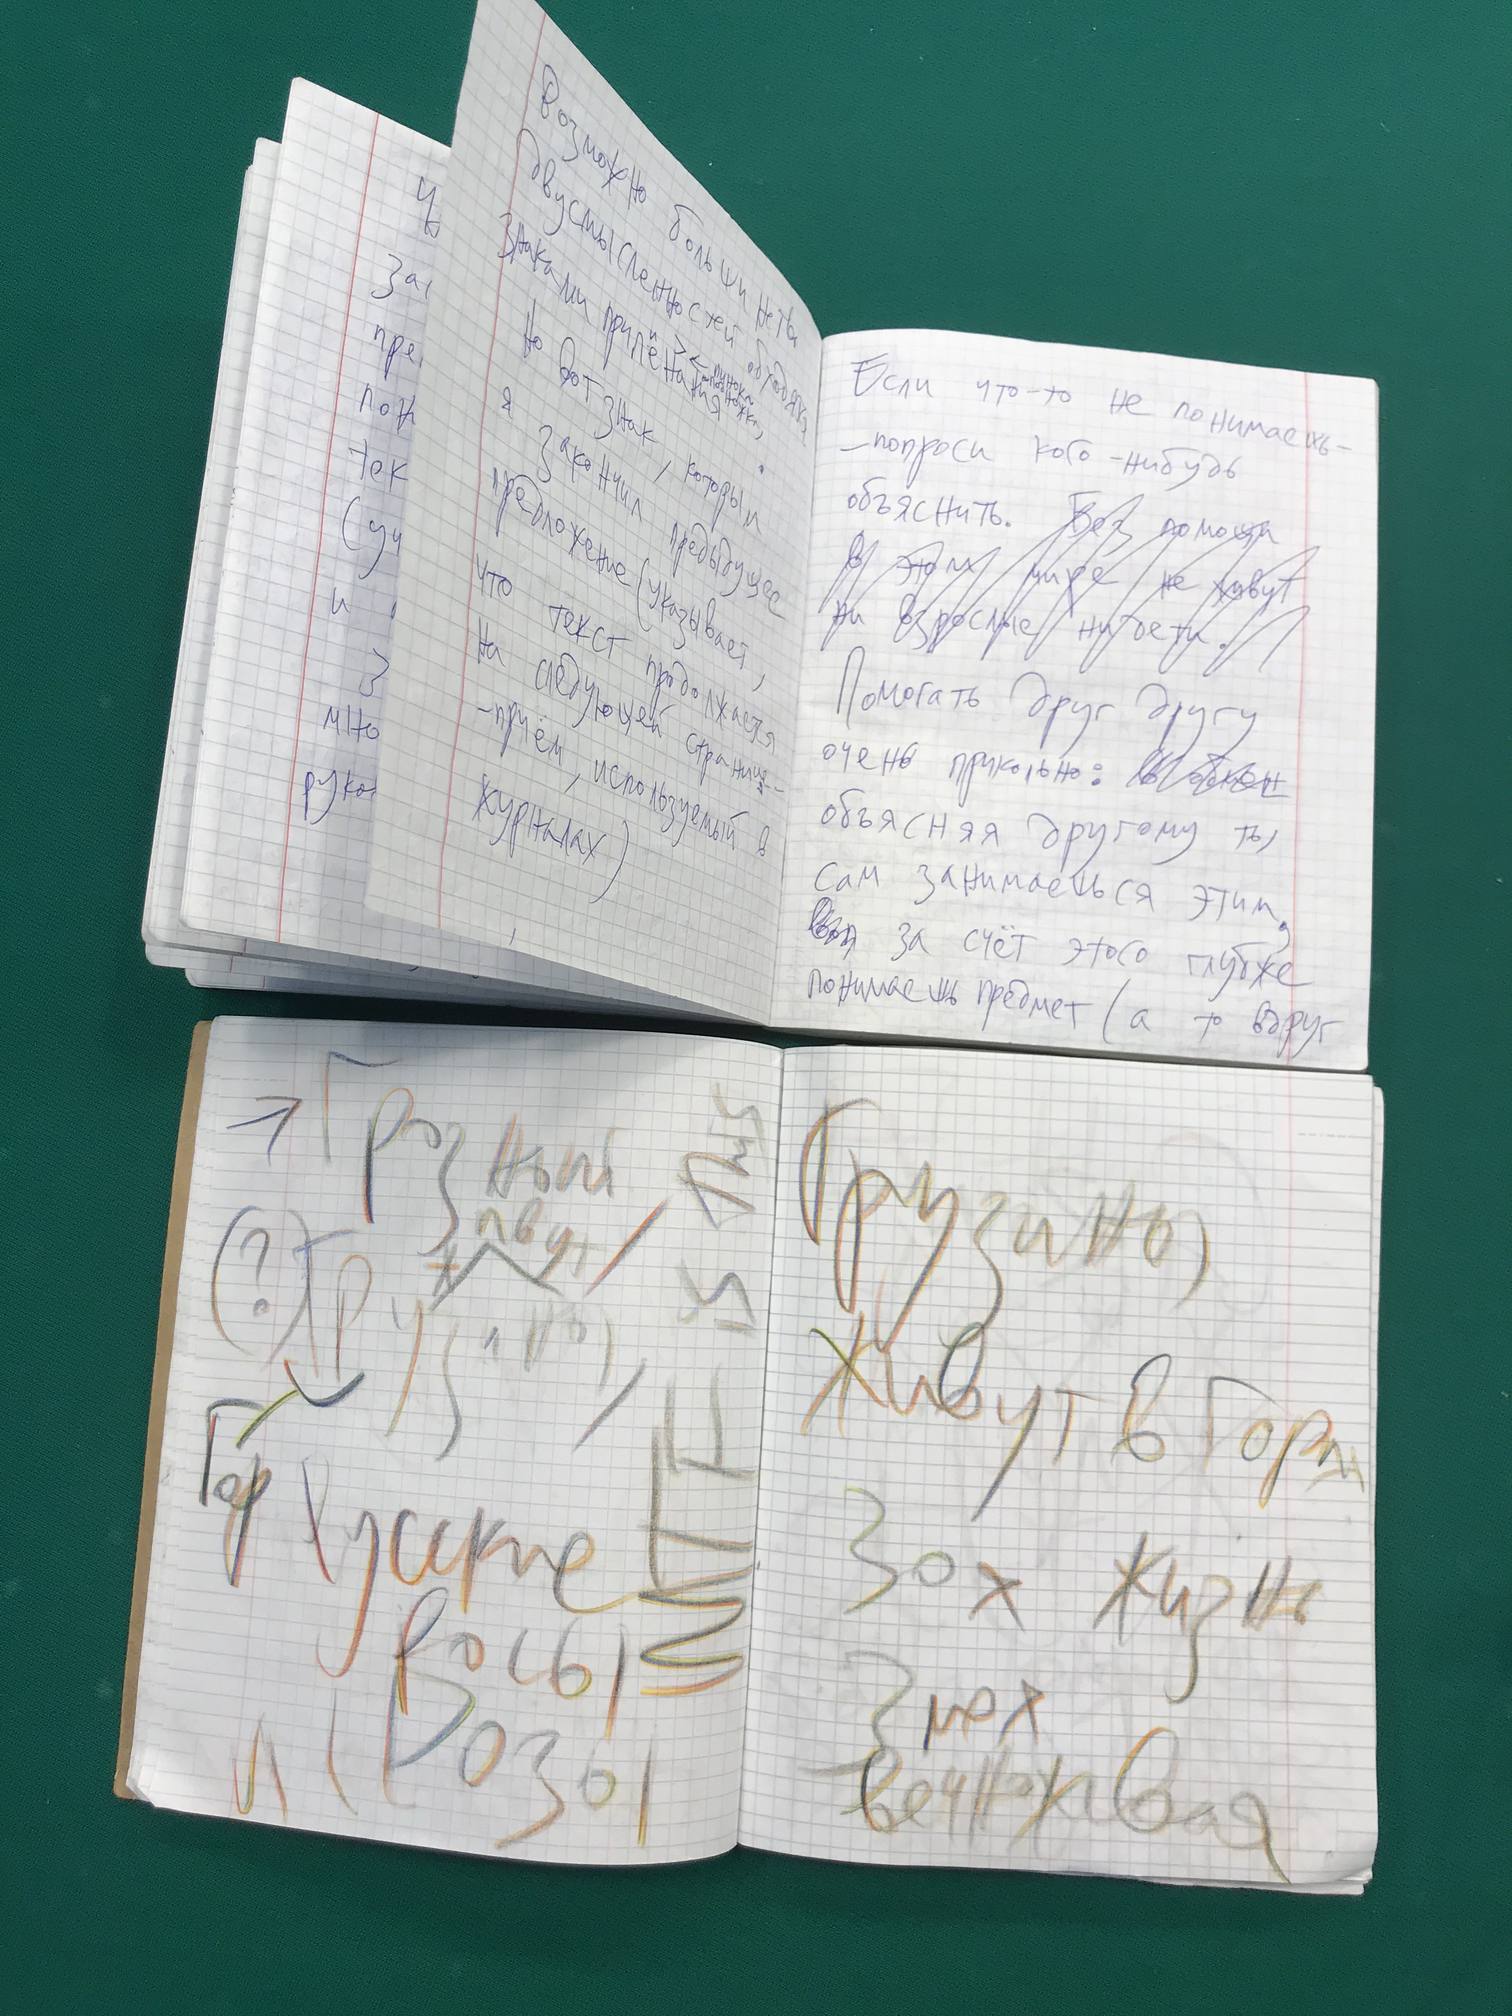 Ч
Заг
пре
пон
тек
(уч
и
З
мно
руко
Возможно больши нство
двусмысленностей обходятся
знаками припёнания
Но вот знак, которым
я закончил предыдущее
предложение (указывает,
что текст продолжается
на следующей странице-
-приём, используемый в
журналах)
Если что-то не понимаешь-
-попроси кого-нибудь
объяснить. Без помощи
в этом мире не живут
ни взрослые ни дети.
Помогать друг другу
очень прикольно:
объясняя другому ты
сам занимаешься этим,
за счёт этого глубже
понимаешь предмет (а то вдруг
→ Грозный
живут
(?) Грузины
Гор Русские
Росы
и (Розы
Грузины
живут в Горах
Зох жизнь
Змох
вечноживая